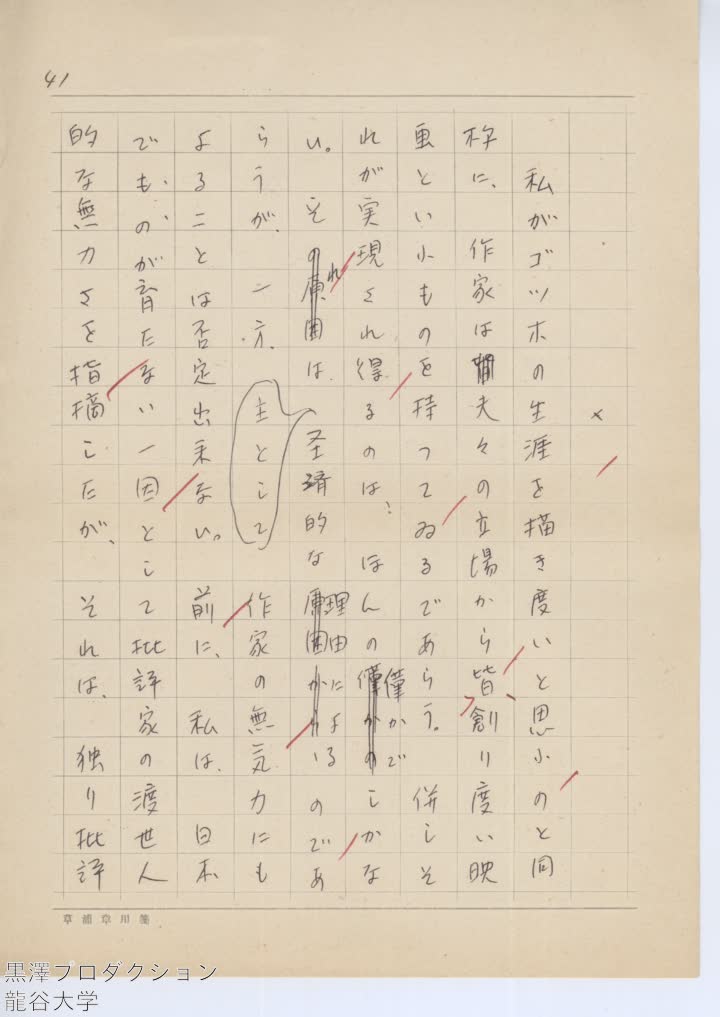 41
×
私がゴッホの生涯を描き度いと思ふのと同
様に、作家は夫々の立場から皆、創り度い映
画といふものを持つてゐるであらう。併しそ
れが実現され得るのは、ほんの僅かでしかな
い。それは、主として経済的な理由によるのであ
らうが、一方、作家の無気力にも
よることは否定出来ない。前に、私は、日本
でものが育たない一因として批評家の渡世人
的な無力さを指摘したが、それは、独り批評
草浦草川箋
黒澤プロダクション
龍谷大学